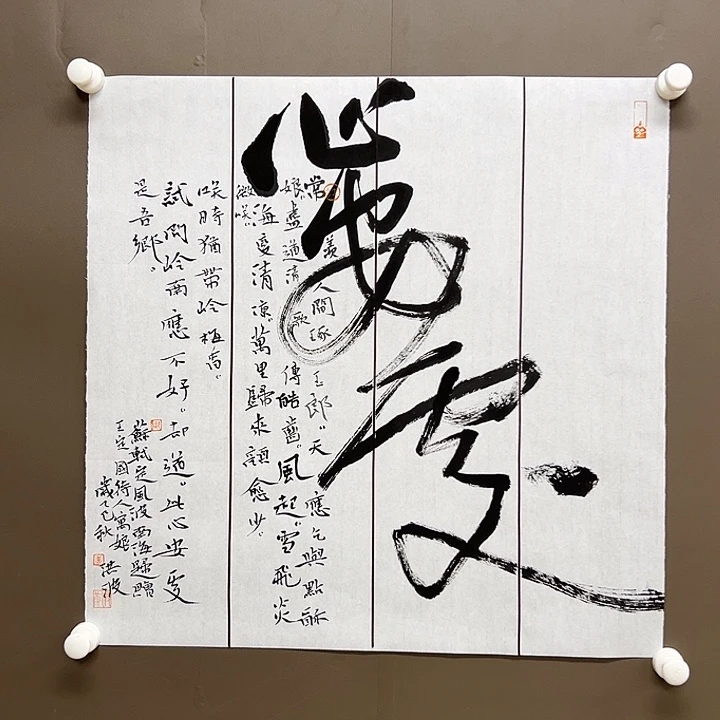 心安處
常羨人間琢玉郎。天應乞與點酥
娘。盡道清歌傳皓齒。風起。雪飛炎
海變清涼。萬里歸來顏愈少。
微咲。
咲時猶帶岭梅香。
試問岭南應不好。却道。此心安處
是吾鄉。
蘇軾定風波南海歸贈
王定國侍人寓娘
歲乙巳秋 洪波